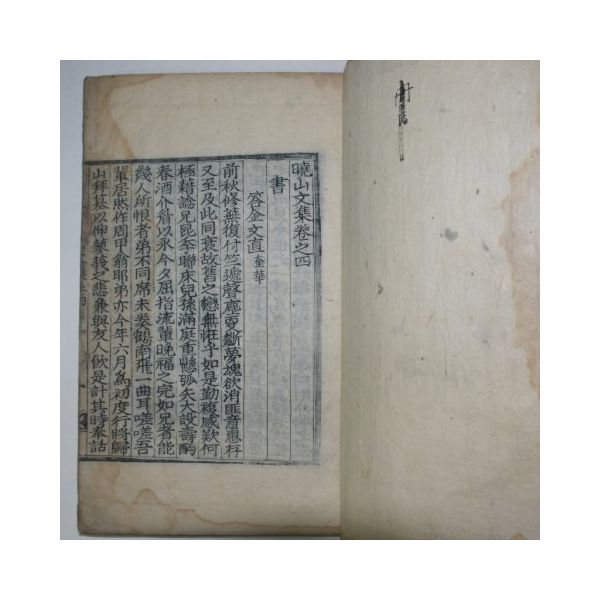 曉山文集卷之四
書
答金文直奎華
前秋修蕪復付竺遞聲塵敻斷夢魂欲消匪意惠存
又至及此同衰故舊之戀無恠乎如是勤複感歎何
極藉諗兄昆季聯床兒孫滿庭重懸弧矢大設壽酌
春酒介眉以永今夕屈指流輩晚福之完如兄者能
幾人所恨者弟不同席未奏鶴南飛一曲耳嗟嗟吾
輩居然作周甲翁耶弟亦今年六月爲初度行將歸
山拜墓以伸蓼莪之悲兼與友人飮是計其時奉詁